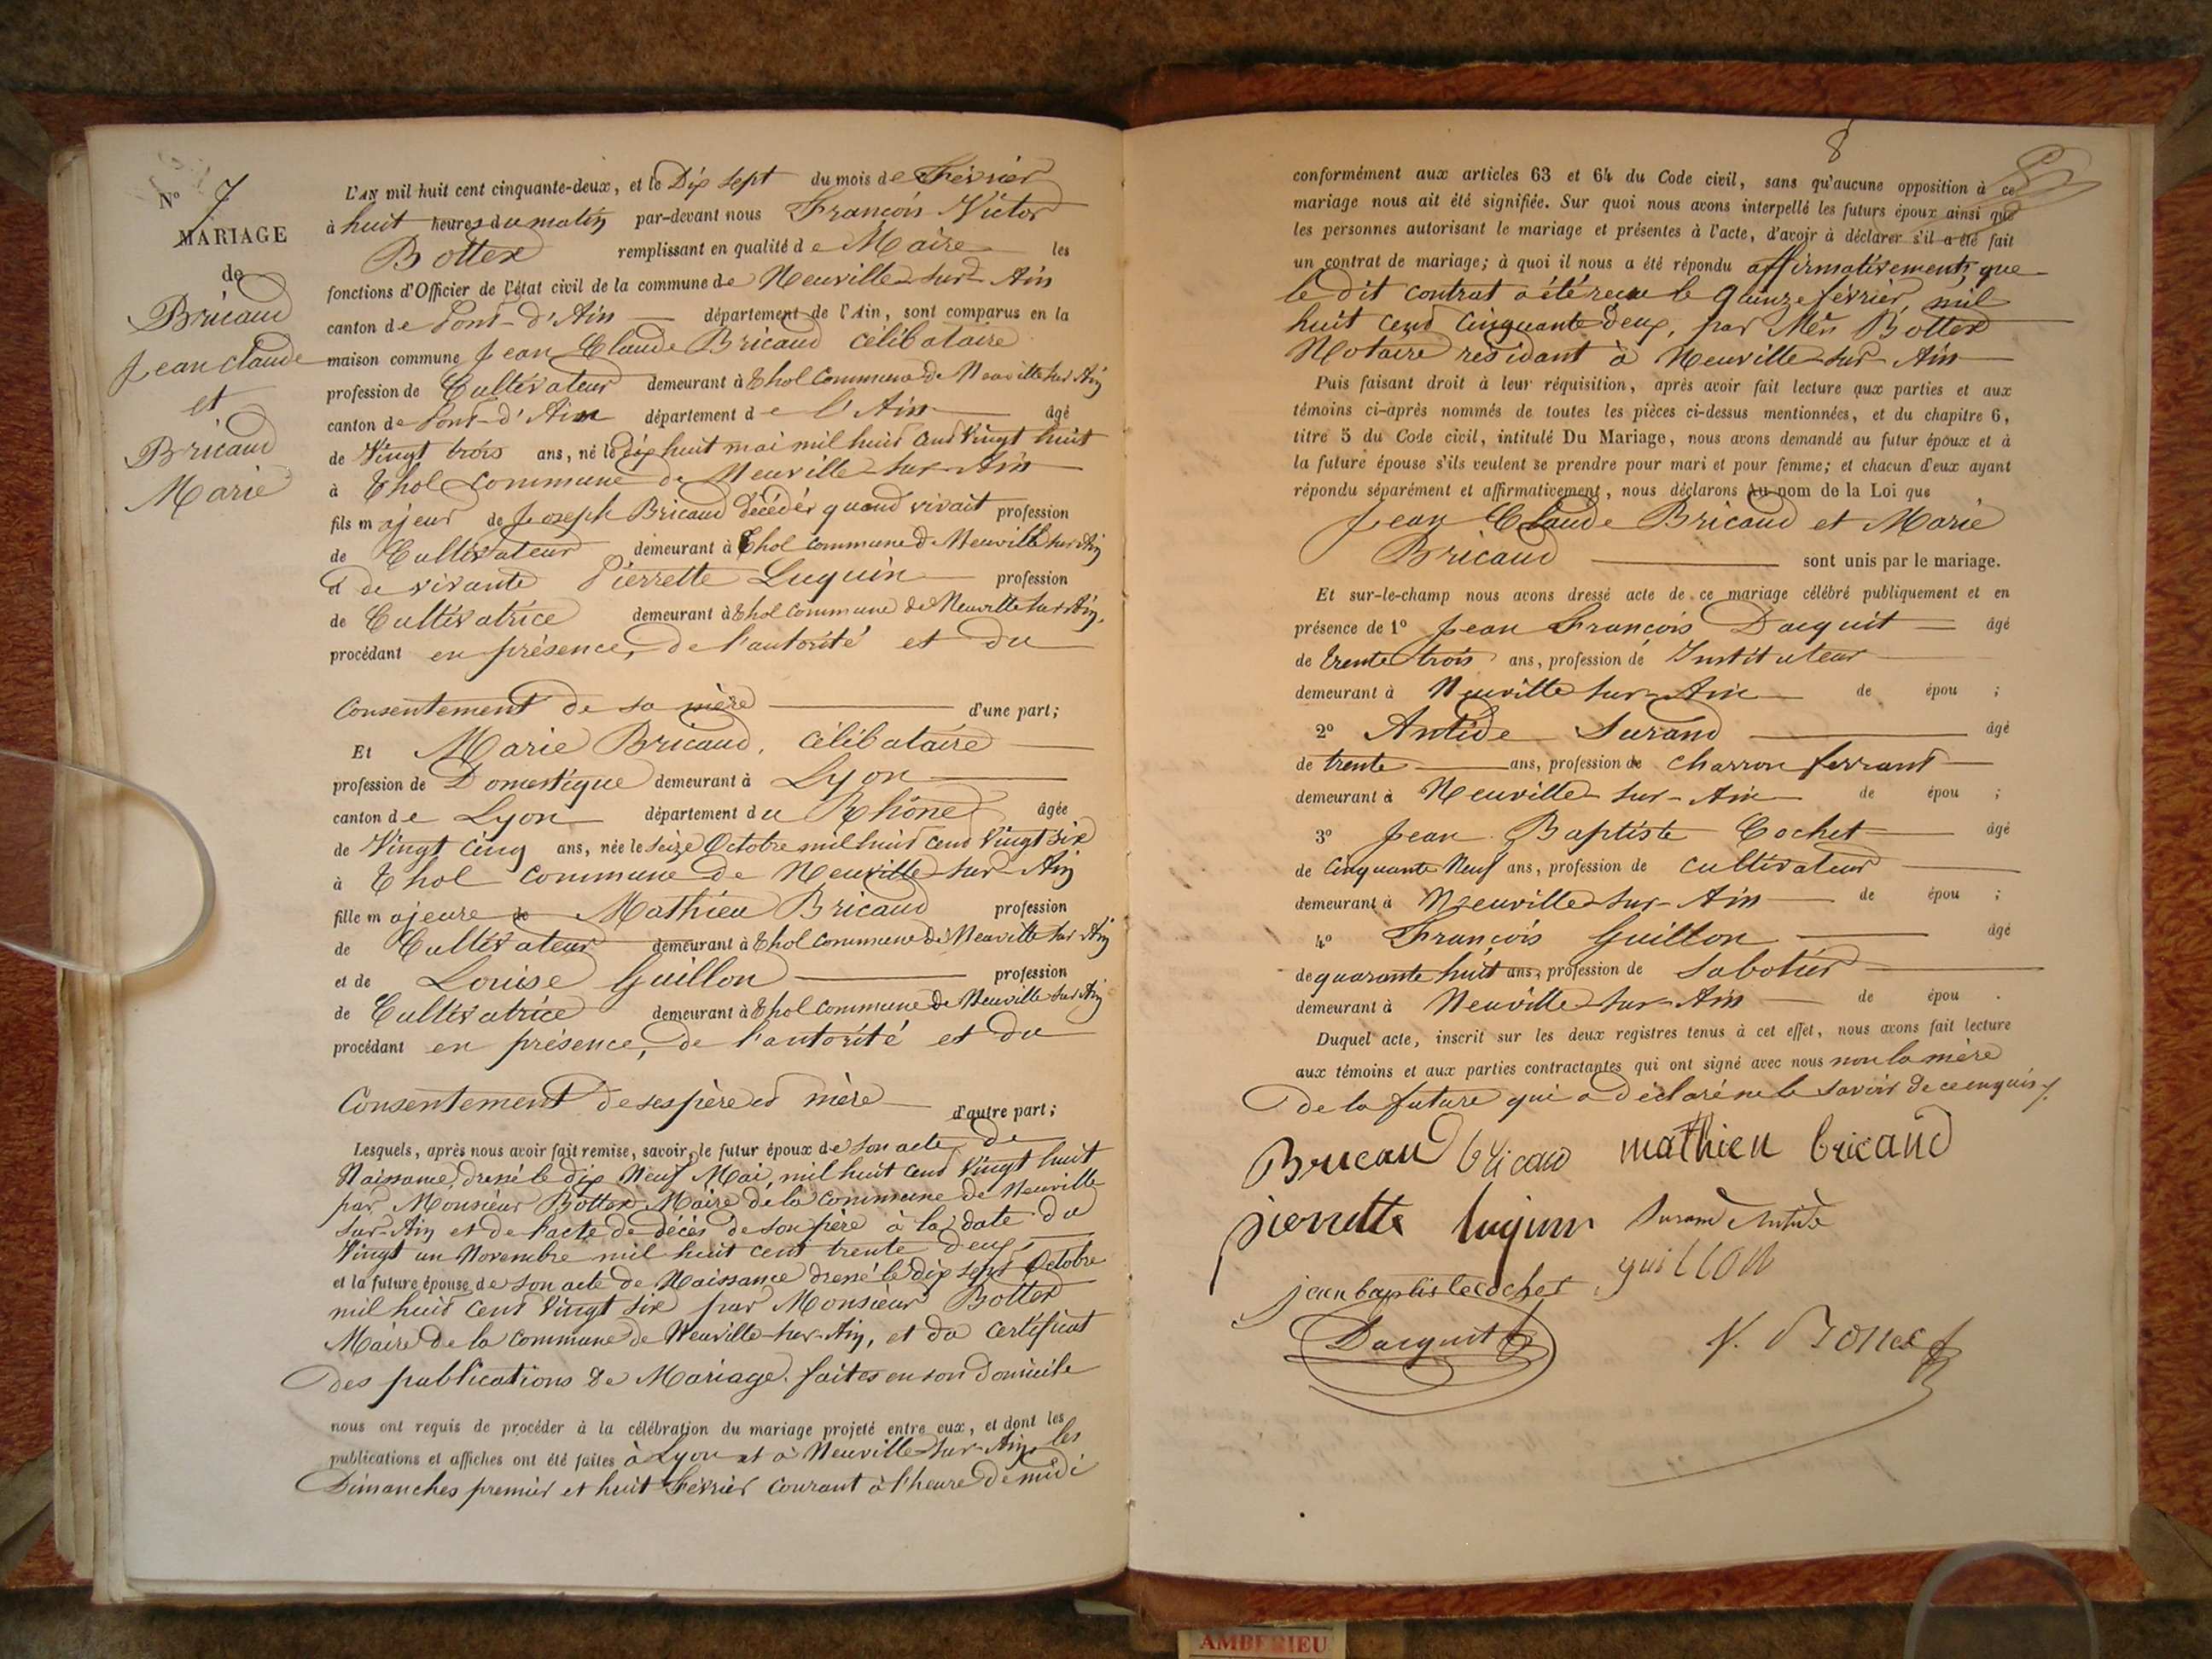 N° 7
MARIAGE
de
Bricaud
Jean Claude
et
Bricaud
Marie
L'AN mil huit cent cinquante-deux, et le Dix sept du mois de Février
à huit heures du matin par-devant nous François Victor
Bottex remplissant en qualité de Maire les
fonctions d'Officier de l'état civil de la commune de Neuville-sur-Ain
canton de Pont-d'Ain département de l'Ain, sont comparus en la
maison commune Jean Claude Bricaud célibataire
profession de Cultivateur demeurant à Thol commune de Neuville sur Ain
canton de Pont-d'Ain département de l'Ain âgé
de Vingt trois ans, né le dix huit mai mil huit cent vingt huit
à Thol commune de Neuville-sur-Ain
fils majeur de Joseph Bricaud décédér quand vivait profession
de Cultivateur demeurant à Thol commune de Neuville sur Ain
et de vivante Pierrette Luquin profession
de Cultivatrice demeurant à Thol commune de Neuville sur Ain.
procédant en présence, de l'autorité et du
Consentement de sa mère d'une part;
Et Marie Bricaud, célibataire
profession de Domestique demeurant à Lyon
canton de Lyon département du Rhône âgée
de Vingt cinq ans, née le seize Octobre mil huit cent vingt six
à Thol commune de Neuville-sur-Ain
fille majeure de Mathieu Bricaud profession
de Cultivateur demeurant à Thol commune de Neuville sur Ain
et de Louise Guillon profession
de Cultivatrice demeurant à Thol commune de Neuville sur Ain
procédant en présence, de l'autorité et du
Consentement de ses père et mère d'autre part;
Lesquels, après nous avoir fait remise, savoir, le futur époux de son acte de
Naissance, dressé le dix Neuf Mai, mil huit cent vingt huit
par Monsieur Bottex Maire de la commune de Neuville
sur-Ain et de l'acte de décès de son père à la date du
Vingt un Novembre mil huit cent trente deux,
et la future épouse de son acte de Naissance dressé le dix sept Octobre
mil huit cent vingt six par Monsieur Bottex
Maire de la commune de Neuville-sur-Ain, et du certificat
des publications de Mariage faites en son domicile
nous ont requis de procéder à la célébration du mariage projeté entre eux, et dont les
publications et affiches ont été faites à Lyon et à Neuville-sur-Ain, les
Dimanches premier et huit Février courant à l'heure de midi
8
conformément aux articles 63 et 64 du Code civil, sans qu'aucune opposition à ce
mariage nous ait été signifiée. Sur quoi nous avons interpellé les futurs époux ainsi que
les personnes autorisant le mariage et présentes à l'acte, d'avoir à déclarer s'il a été fait
un contrat de mariage; à quoi il nous a été répondu affirmativement, que
le dit contrat a été reçu le quinze février, mil
huit cent cinquante deux, par Bottex
Notaire résidant à Neuville-sur-Ain
Puis faisant droit à leur réquisition, après avoir fait lecture aux parties et aux
témoins ci-après nommés de toutes les pièces ci-dessus mentionnées, et du chapitre 6,
titre 5 du Code civil, intitulé Du Mariage, nous avons demandé au futur époux et à
la future épouse s'ils veulent se prendre pour mari et pour femme; et chacun d'eux ayant
répondu séparément et affirmativement, nous déclarons Au nom de la Loi que
Jean Claude Bricaud et Marie
Bricaud sont unis par le mariage.
Et sur-le-champ nous avons dressé acte de ce mariage célébré publiquement et en
présence de 1° Jean François Dacquit âgé
de trente trois ans, profession de Instituteur
demeurant à Neuville sur-Ain de épou ;
2° Antide Durand âgé
de trente ans, profession de charron ferrant
demeurant à Neuville-sur-Ain de épou ;
3° Jean Baptiste Cochet âgé
de cinquante Neuf ans, profession de cultivateur
demeurant à Neuville-sur-Ain de épou ;
4° François Guillon âgé
de quarante huit ans, profession de Sabotier
demeurant à Neuville-sur-Ain de épou .
Duquel acte, inscrit sur les deux registres tenus à cet effet, nous avons fait lecture
aux témoins et aux parties contractantes qui ont signé avec nous non la mère
De la future qui a déclaré ne le savoir de ce enquis
Bricaud bricaud mathieu bricaud
pierrette luquin Durand Antide
jean baptiste cochet guillon
Dacquit V. Bottex
AMBERIEU